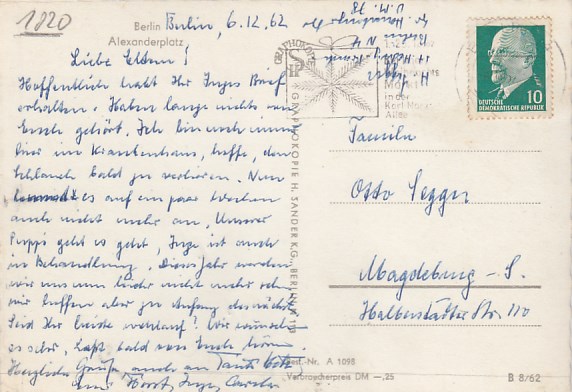 1820
Berlin
Alexanderplatz
Berlin, 6.12.62
Liebe Eltern!
Hoffentlich habt Ihr Inges Brief
erhalten. Haben lange nichts von
Euch gehört. Ich bin noch immer
hier im Krankenhaus, hoffe, den
Schlauch bald zu verlieren. Nun
es auf ein paar Wochen
auch nicht mehr an. Unserer
Puppi geht es gut, Inge ist auch
in Behandlung. Dieses Jahr werden
wir uns leider nicht mehr sehen
wir hoffen aber zu Anfang des nächst.
Seid Ihr beide wohlauf? Wir wünschen
es sehr, laßt bald von Euch hören.
Herzliche Grüße, auch an Tante
Eure Horst, Inge,
GRAPHOKOPIE
GRAPHOKOPIE H. SANDER K.G. BERLIN
Markt
in der
Karl-Marx-
Allee
DEUTSCHE
DEMOKRATISCHE REPUBLIK
10
Familie
Otto Segger
Magdeburg-S.
Halberstädter Str. 110
Best.-Nr. A 1098
Verbraucherpreis DM -,25
B 8/62